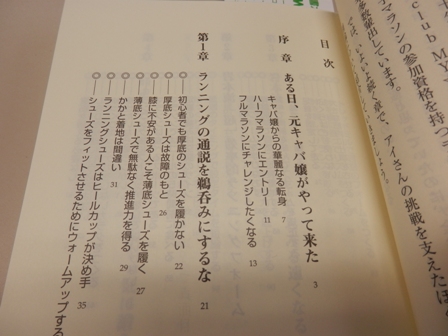 club MY
マラソンの参加資格を持
数輩出しています。
アイさんの挑戦を支えたほ
目次
序章 ある日、元キャバ嬢がやって来た 3
キャバ嬢からの華麗なる転身 7
ハーフマラソンにエントリー 11
フルマラソンにチャレンジしたくなる 13
第1章 ランニングの通説を鵜呑みにするな 21
◎─初心者でも厚底のシューズを履かない 22
◎─厚底シューズは故障のもと 26
◎─膝に不安がある人こそ薄底シューズを履く 27
◎─薄底シューズで無駄なく推進力を得る 29
◎─かかと着地は間違い 31
◎─ランニングシューズはヒールカップが決め手 35
◎─シューズをフィットさせるためにウォームアップする